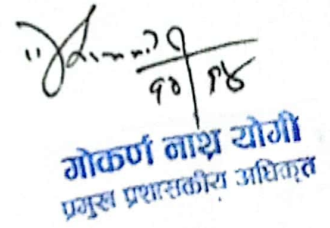 १०|१४
गोकर्ण नाथ योगी
प्रमुख प्रशासकीय अधिकृत